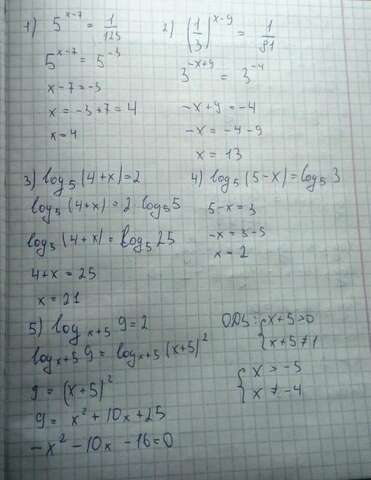 1) 5^(x-7) = 1/125
5^(x-7) = 5^(-3)
x-7 = -3
x = -3+7 = 4
x = 4
2) (1/3)^(x-9) = 1/81
3^(-x+9) = 3^(-4)
-x+9 = -4
-x = -4-9
x = 13
3) log₅(4+x)=2
log₅(4+x) = 2 log₅5
log₅(4+x) = log₅25
4+x = 25
x = 21
4) log₅(5-x) = log₅3
5-x = 3
-x = 3-5
x = 2
5) log_(x+5) 9 = 2
log_(x+5) 9 = log_(x+5) (x+5)²
9 = (x+5)²
9 = x²+10x+25
-x²-10x-16=0
ОДЗ: { x+5>0
x+5≠1
{ x > -5
x ≠ -4